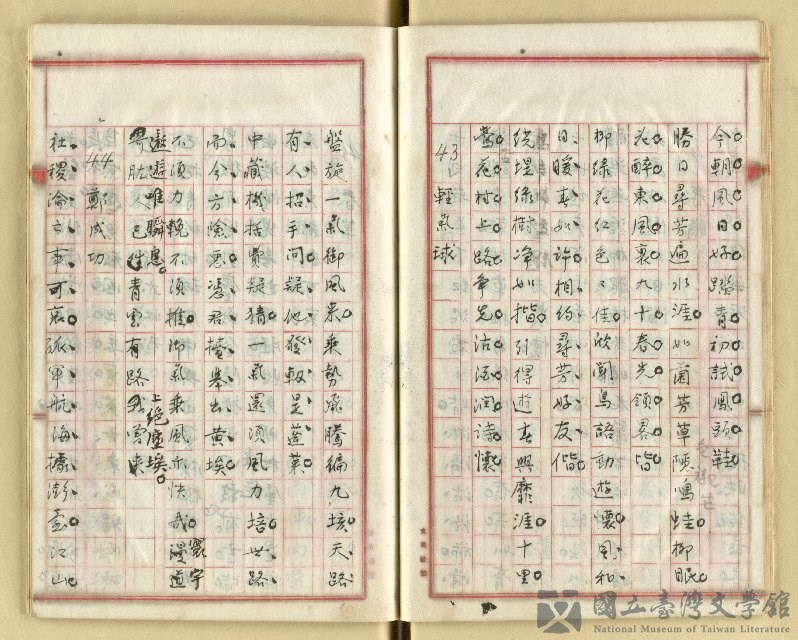 今朝風日好踏青初試鳳頭鞋
勝日尋芳遍水涯如茵芳草隱鳴蛙柳眠
花醉東風裏九十春光領畧皆
柳綠花紅色々佳欣聞鳥語動遊懷風和
日暖春如許相約尋芳好友偕
繞堤綠樹淨如揩引得遊春興靡涯十里
鶯花村上路爭先沽酒潤詩懷
43 輕氣球
盤旋一氣御風來乘勢飛騰徧九垓天路
有人招手問疑他發軔是蓬萊
中藏機括費疑猜一氣還須風力培世路
而今方險惡憑君擡舉出黃埃
不須力輓不須推御氣乘風亦快哉漫道
寰宇遨遊唯瞬息
上絕塵埃
青雲有路我曾來
44 鄭成功
社稷淪亡事可哀孤軍航海據澎臺江山
國立臺灣文學館
National Museum of Taiwan Literature